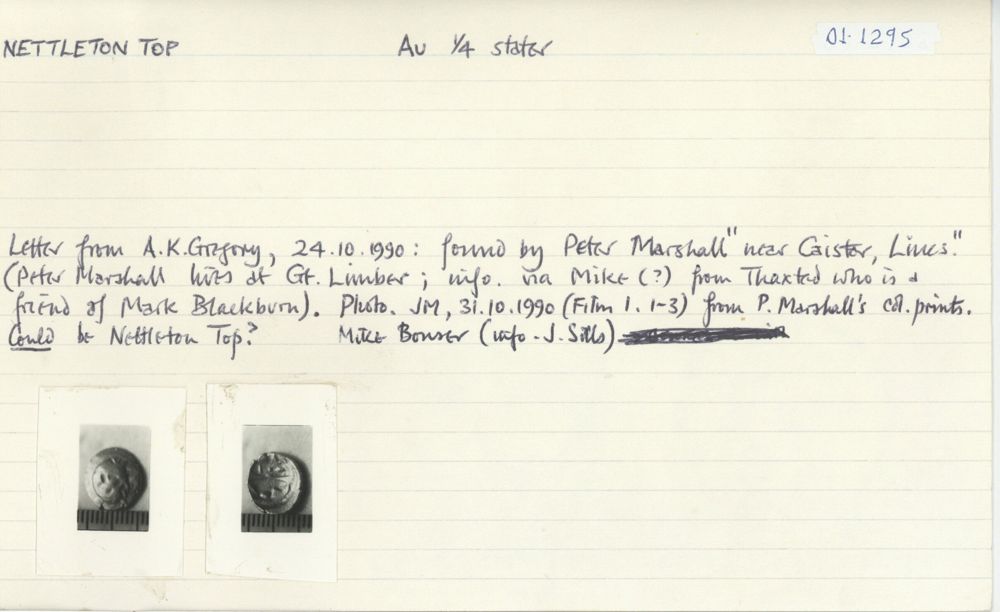 NETTLETON TOP Au 1/4 stater 01·1295
Letter from A.K.Gregory, 24.10.1990: found by Peter Marshall "near Caistor, Lincs."
(Peter Marshall lives at Gt. Limber; info. via Mike (?) from Thaxted who is a
friend of Mark Blackburn). Photo. JM, 31.10.1990 (Film 1. 1-3) from P. Marshall's col. prints.
Could be Nettleton Top? Mike Bonser (info. J. Sills)